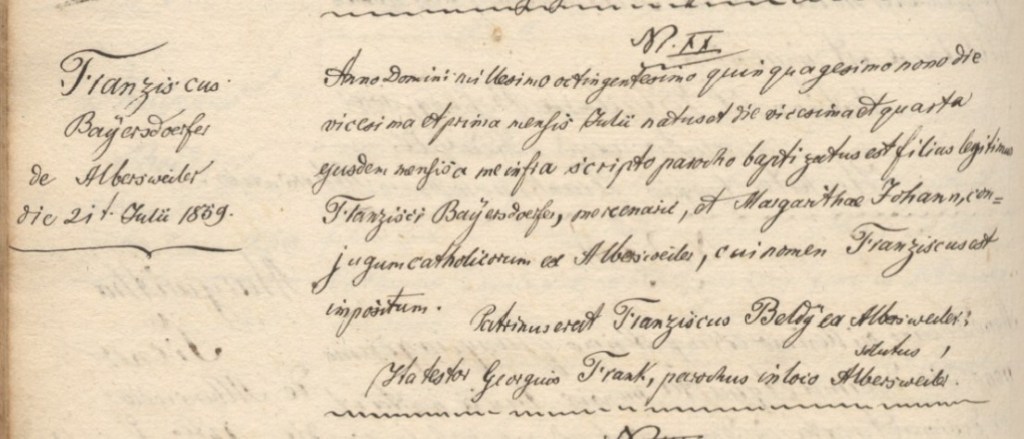 Franziscus
Bayersdoerfer
de Albersweiler
die 21t Julii 1859.
Nr. XX
Anno Domini millesimo octingentesimo quinquagesimo nono die
vicesima et prima mensis Julii natus et die vicesima et quarta
ejusdem mensis a me infra scripto parocho baptizatus est filius legitimus
Franzisci Bayersdoerfer, mercenarii, et Margarithae Johann, con=
jugum catholicorum ex Albersweiler, cui nomen Franziscus est
impositum.
Patrinus erat Franziscus Beldy ex Albersweiler,
solutus,
Ita testor Georgius Frank, parochus in loco Albersweiler.